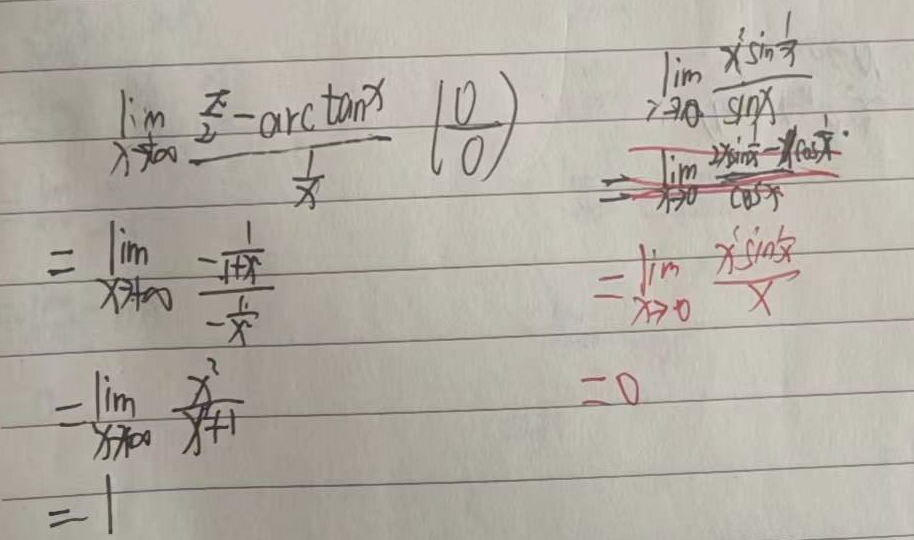 lim x→+∞ (π/2 - arctanx)/(1/x) (0/0)
= lim x→+∞ (-1/(1+x²))/(-1/x²)
= lim x→+∞ x²/(x²+1)
= 1
lim x→0 (x² sin 1/x)/(sinx)
= lim x→0 (2x sin 1/x - cos 1/x)/(cosx)
= lim x→0 (x² sin 1/x)/x
= 0